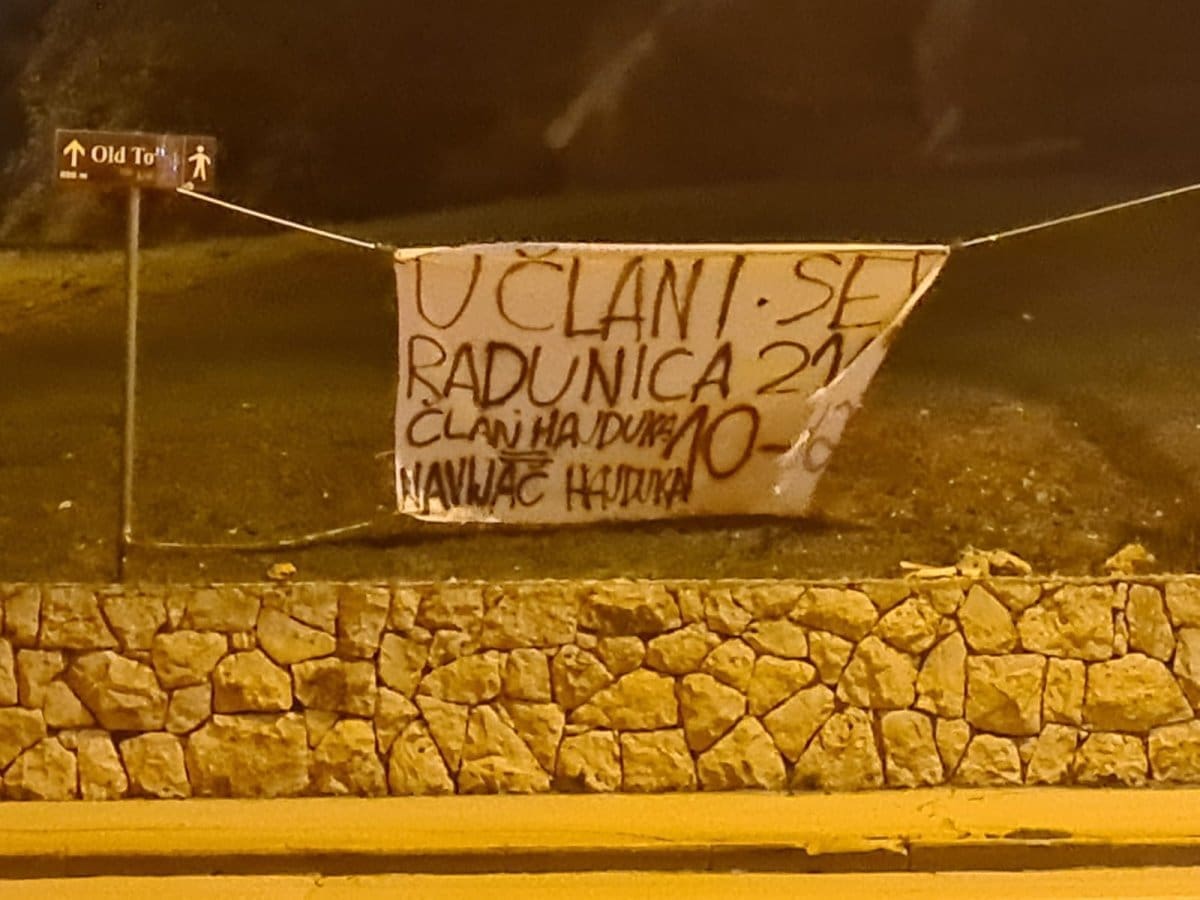 Old To
UČLANI·SE!
RADUNICA 21
ČLAN HAJDUKA
NAVIJAČ HAJDUKA
10-